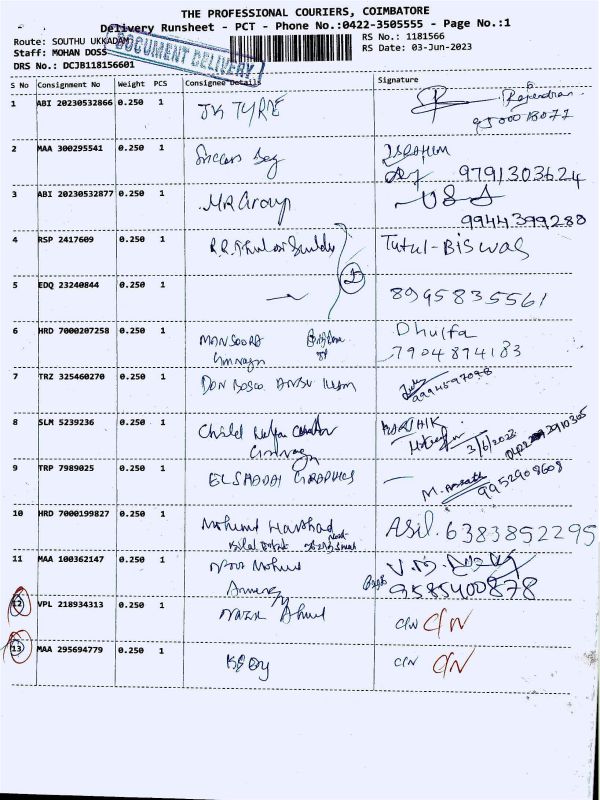 THE PROFESSIONAL COURIERS, COIMBATORE
Delivery Runsheet - PCT - Phone No.:0422-3505555 - Page No.:1
Route: SOUTHU UKKADAM
RS No.: 1181566
Staff: MOHAN DOSS
RS Date: 03-Jun-2023
DRS No.: DCJB118156601
DOCUMENT DELIVERY
S No Consignment No Weight PCS Consignee Details Signature
1 ABI 20230532866 0.250 1 JK TYRE Rajendran
2 MAA 300295541 0.250 1 IBRAHIM
9791303624
3 ABI 20230532877 0.250 1 MR Group
9944399288
4 RSP 2417609 0.250 1 Tutul-Biswas
5 EDQ 23240844 0.250 1 8995835561
6 HRD 7000207258 0.250 1 MANSOORA Dhulfa
7904894183
7 TRZ 325460270 0.250 1 DON BOSCO ANBU ILLAM
9994597098
8 SLM 5239236 0.250 1 Child KARTHIK
3/6/2023
9 TRP 7989025 0.250 1 EL SHADDAI GRAPHICS
9952908608
10 HRD 7000199827 0.250 1 Mohamed Harshad Asil. 6383852295
11 MAA 100362147 0.250 1
9585400878
12 VPL 218934313 0.250 1 C/N C/N
13 MAA 295694779 0.250 1 C/N C/N